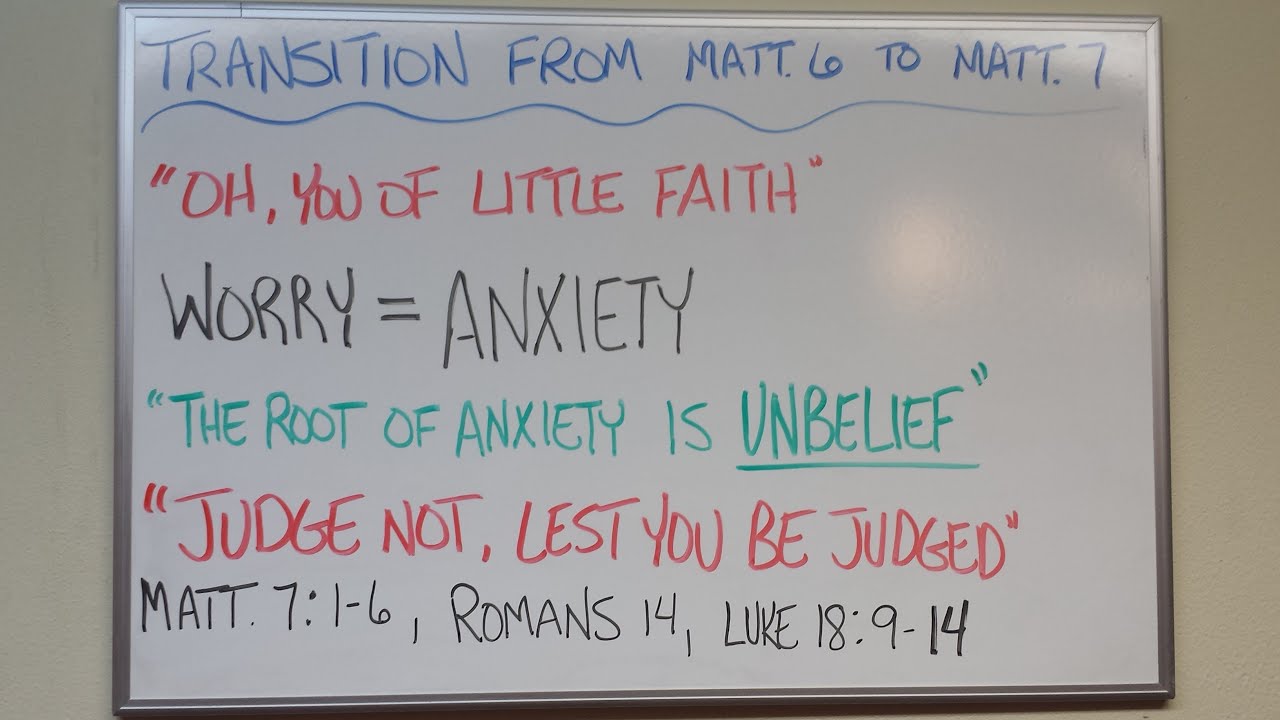 TRANSITION FROM MATT. 6 TO MATT. 7
"OH, YOU OF LITTLE FAITH"
WORRY = ANXIETY
"THE ROOT OF ANXIETY IS UNBELIEF"
"JUDGE NOT, LEST YOU BE JUDGED"
MATT. 7:1-6, ROMANS 14, LUKE 18:9-14